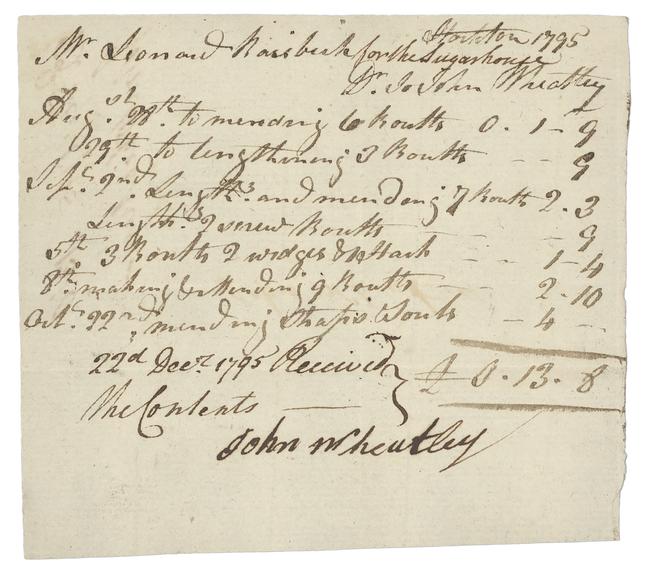 Stockton 1795
Mr. Leonard Raisbeck for the Sugarhouse
Dr. to John Wheatley
Augst. 28th. to mending 6 Boults 0 . 1 - 9
29th to lengthning 3 Boults - - 9
Sepr. 2nd. Length and mending 7 Boults 2 . 3
Length 2 screw Boults - - 9
5th 3 Boults 2 wedges & 1 - 4
8th. making & mending 9 Boults - 2 - 10
Octr. 22nd. mending - 4 -
22d Decr 1795 Received } £ 0 . 13 . 8
the Contents
John Wheatley